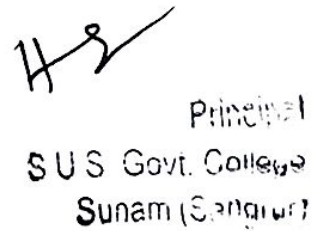 Principal
SUS Govt. College
Sunam (Sangrur)